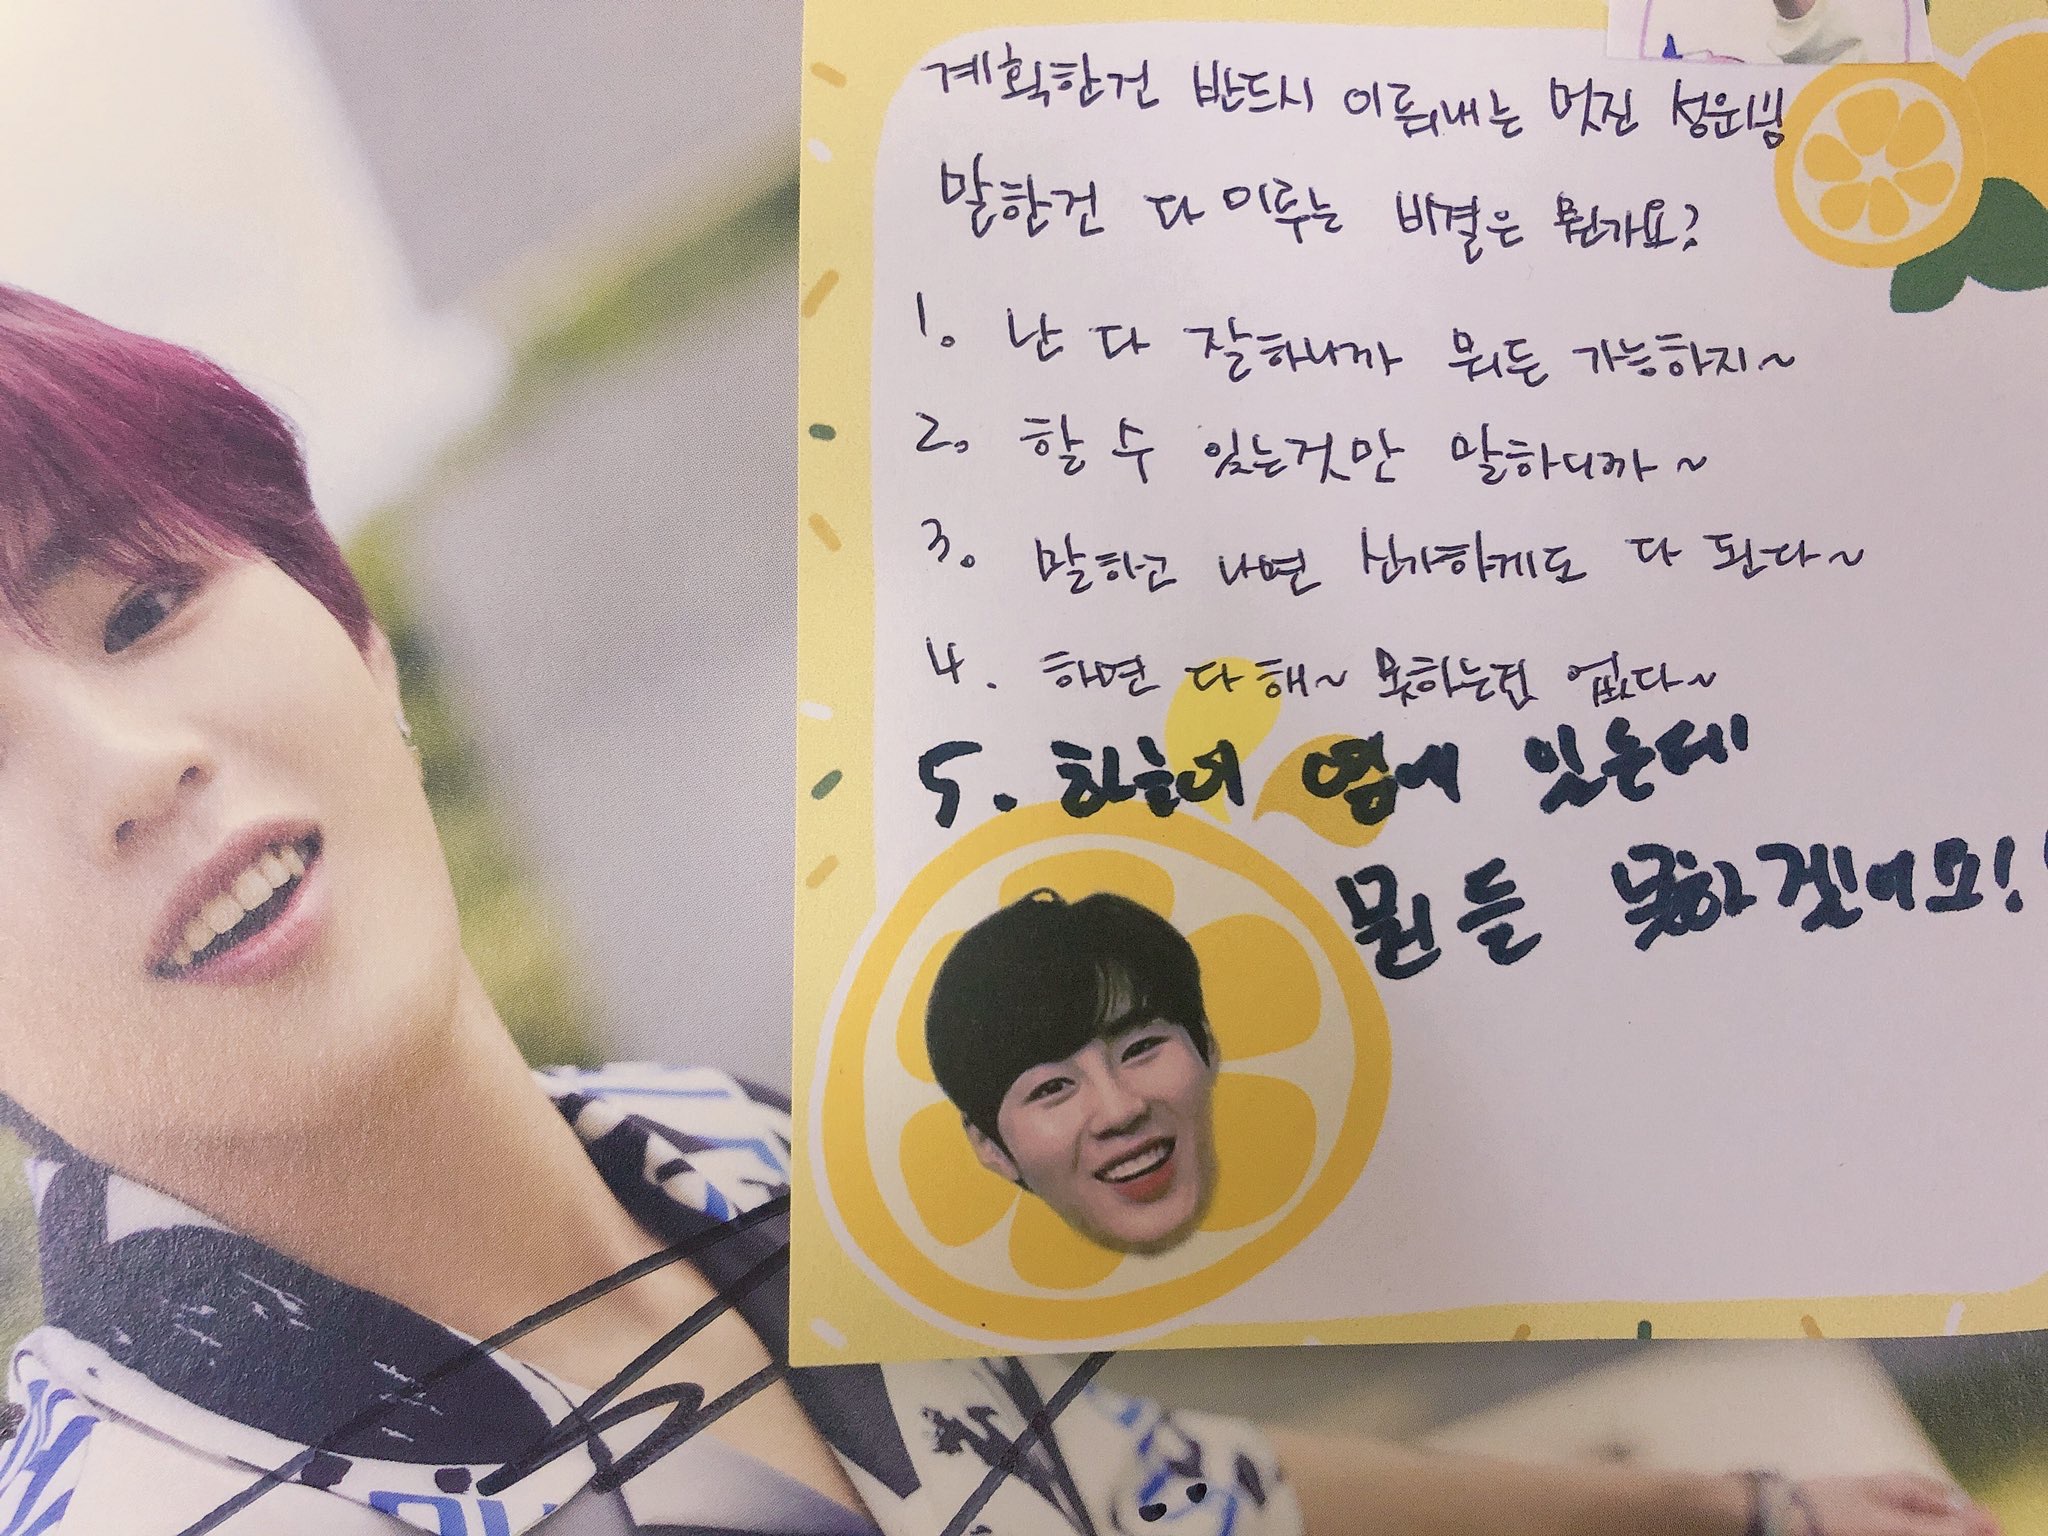 계획한건 반드시 이뤄내는 멋진 성운님
말한건 다 이루는 비결은 뭔가요?
1. 난 다 잘하니까 뭐든 가능하지~
2. 할 수 있는것만 말하니까~
3. 말하고 나면 신기하게도 다 된다~
4. 하면 다 해~ 못하는건 없다~
5. 하늘이 옆에 있는데
뭔들 못하겠어요!